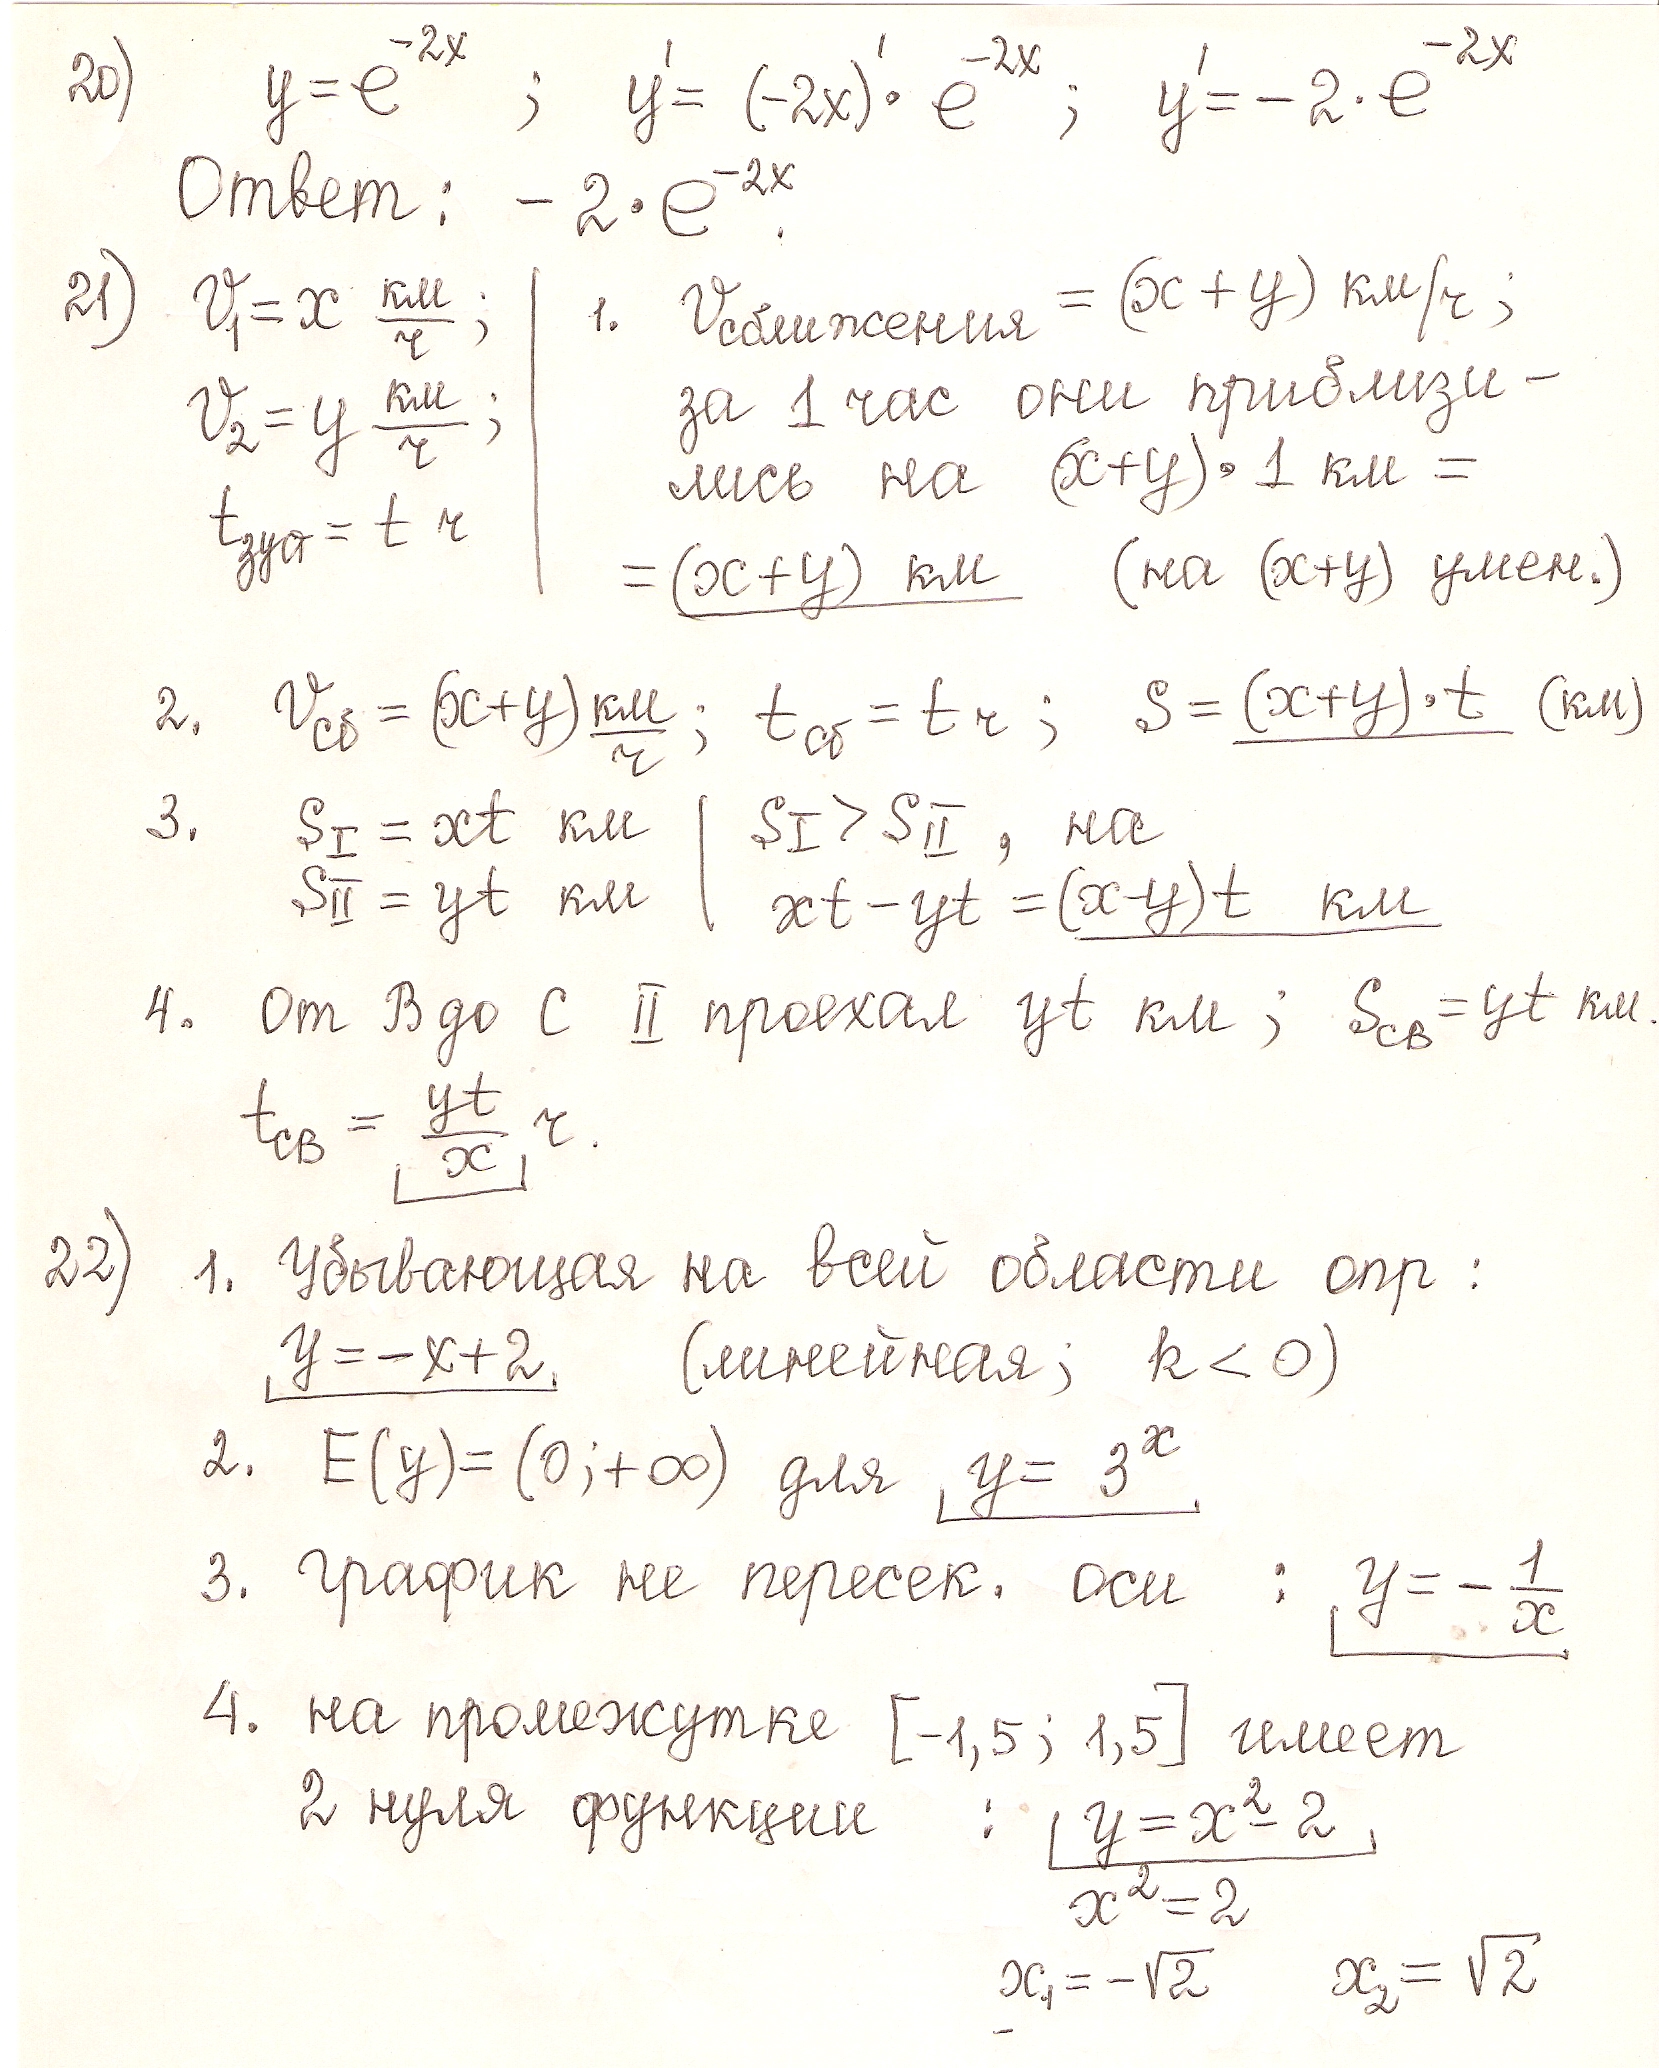 20) y = e^{-2x} ; y' = (-2x)' · e^{-2x} ; y' = -2 · e^{-2x}
Ответ: -2 · e^{-2x}.
21) V₁ = x км/ч ;
V₂ = y км/ч ;
t_{зуст} = t ч
1. V_{сближения} = (x+y) км/ч ;
за 1 час они приблизи-
лись на (x+y)·1 км =
= (x+y) км (на (x+y) умен.)
2. V_{сб} = (x+y) км/ч ; t_{сб} = t ч ; S = (x+y)·t (км)
3. S_I = xt км | S_I > S_{II} , на
S_{II} = yt км | xt - yt = (x-y)t км
4. От B до C II проехал yt км ; S_{CB} = yt км.
t_{CB} = yt/x ч.
22) 1. Убывающая на всей области опр :
y = -x+2 (линейная ; k < 0)
2. E(y) = (0 ; +∞) для y = 3^x
3. График не пересек. оси : y = - 1/x
4. на промежутке [-1,5 ; 1,5] имеет
2 нуля функции : y = x² - 2
x² = 2
x₁ = -√2 x₂ = √2